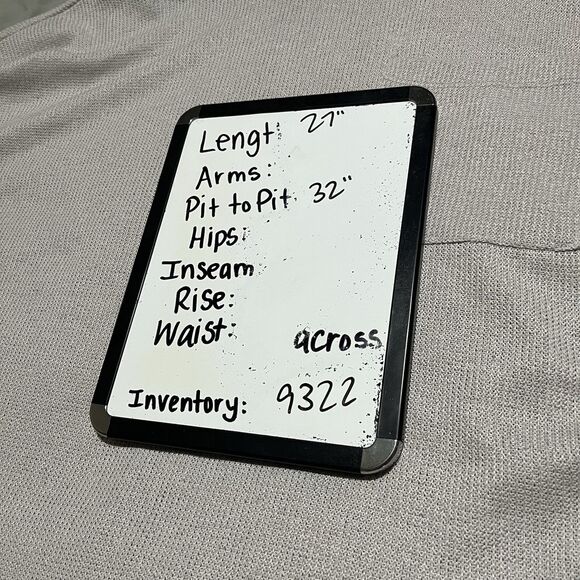 Lengt: 27"
Arms:
Pit to Pit 32"
Hips:
Inseam
Rise:
Waist: across
Inventory: 9322